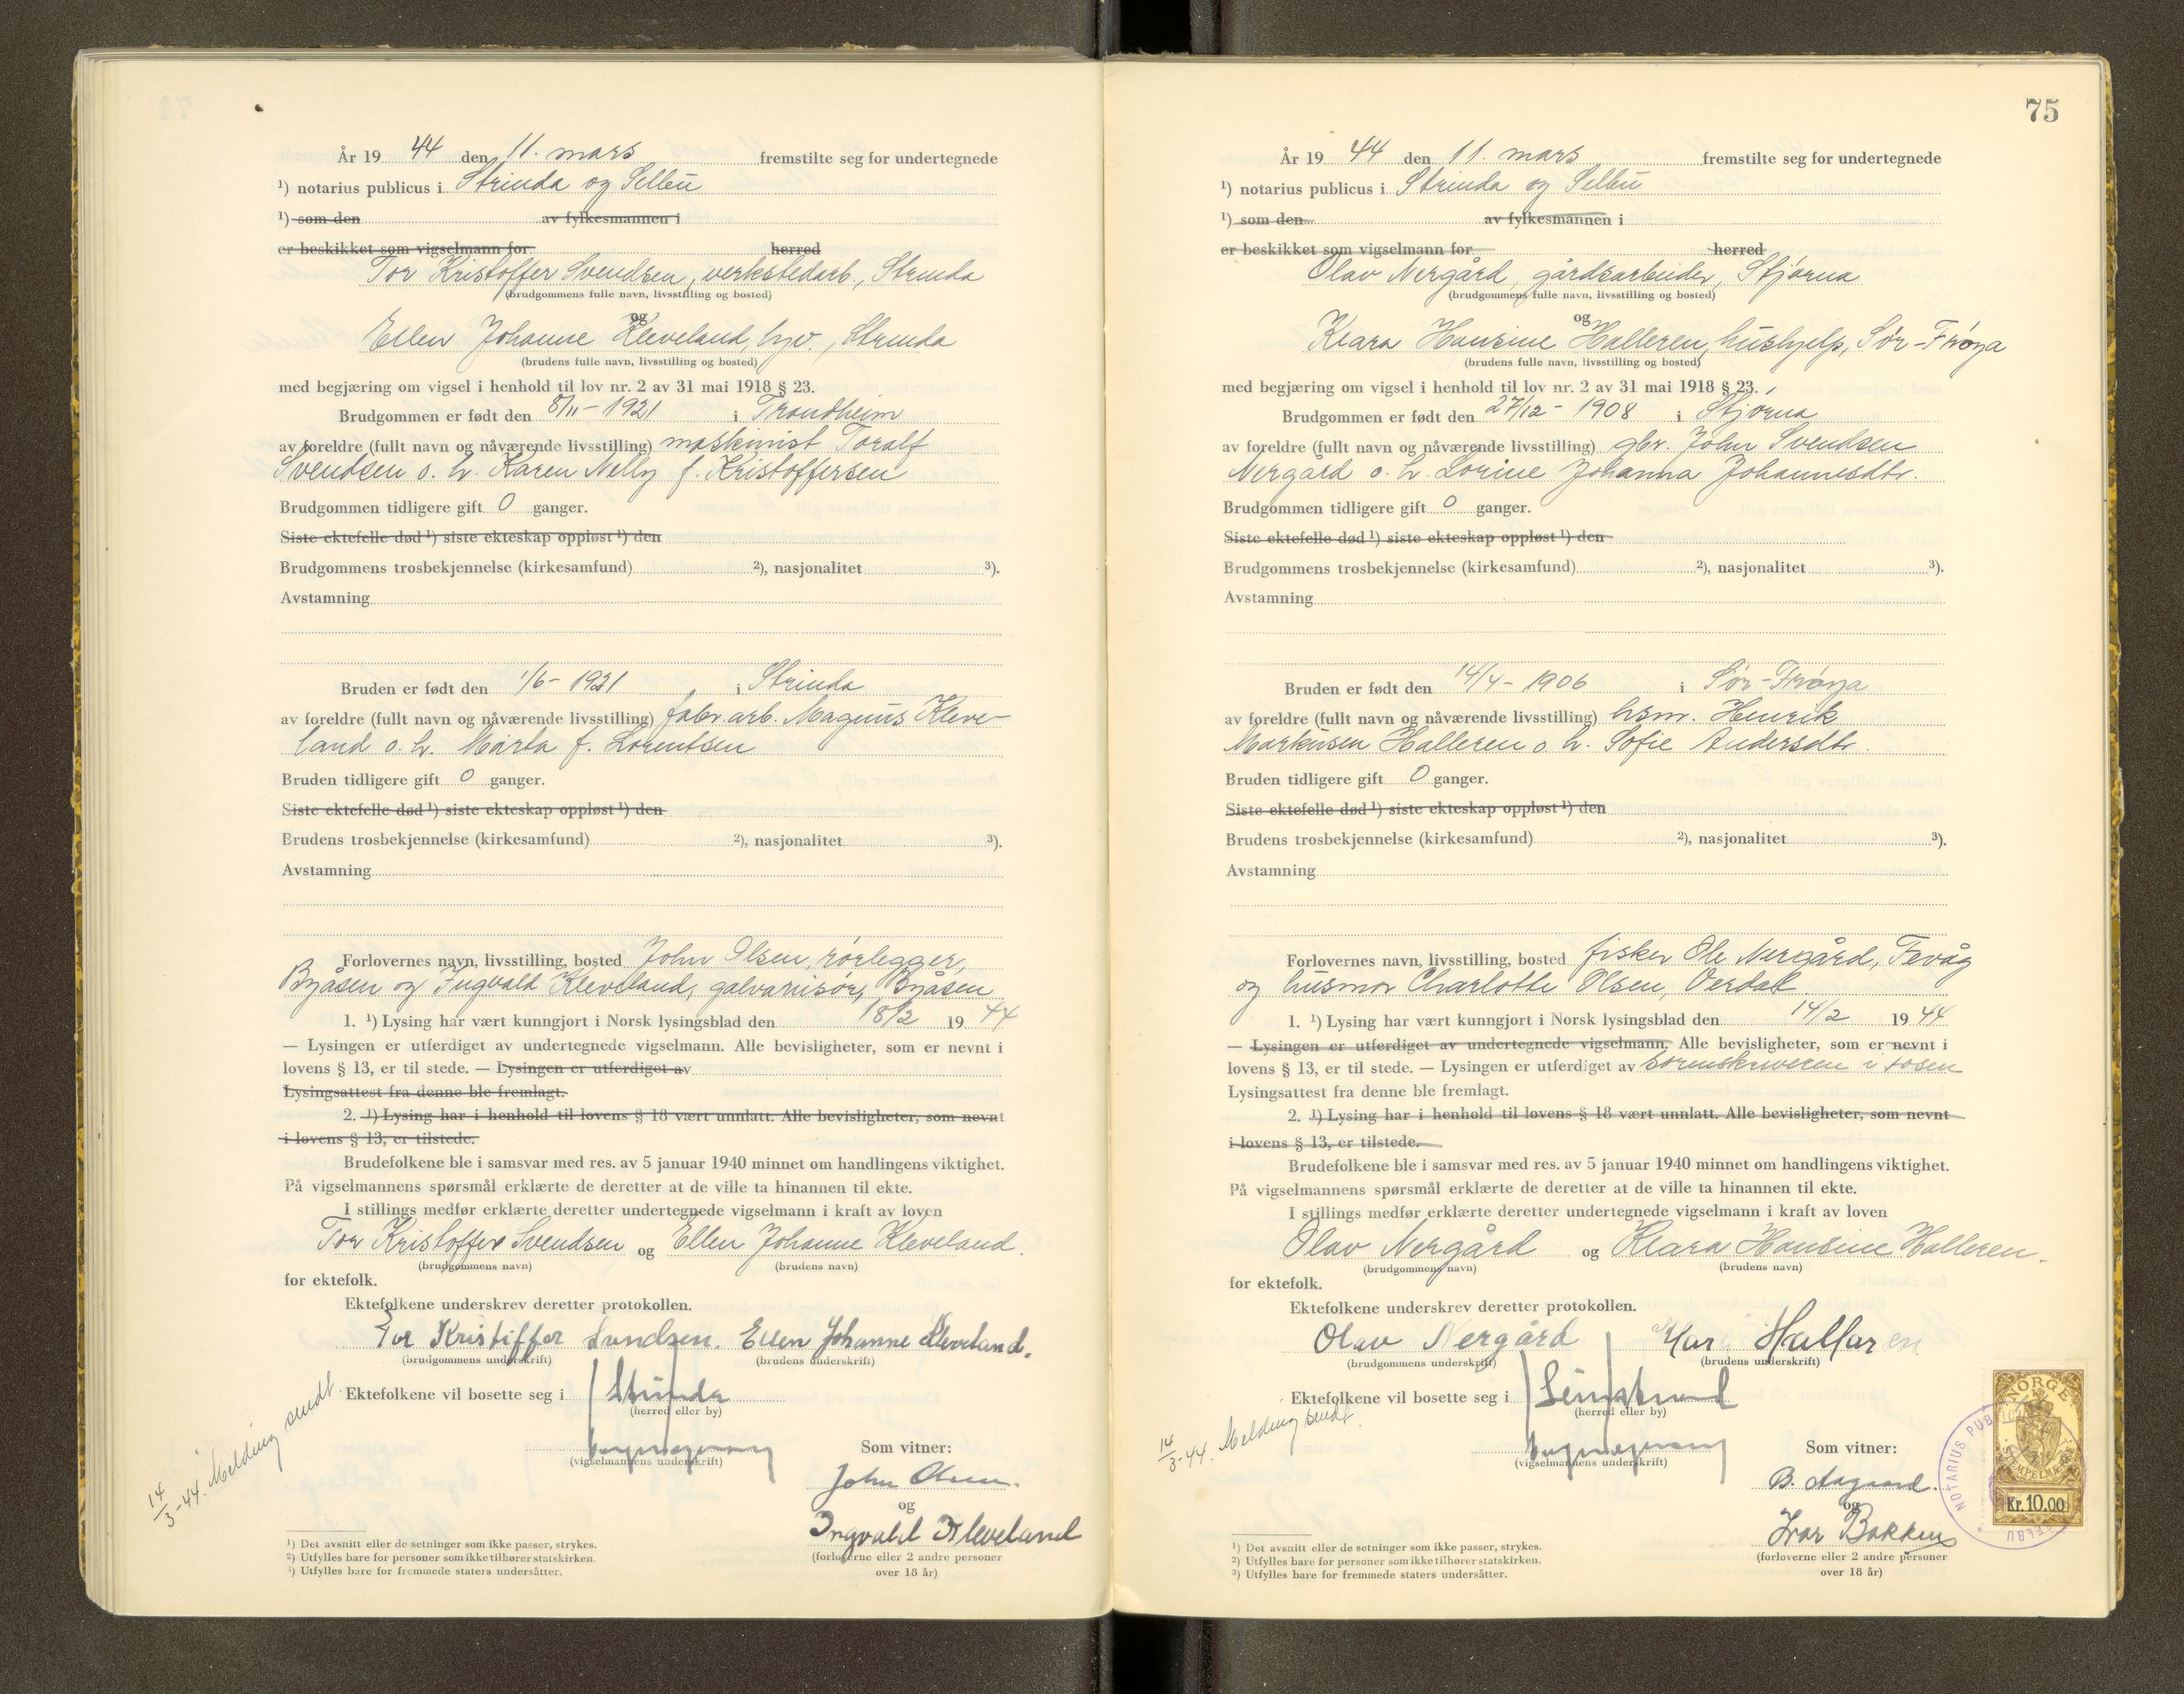 År 19 44 den 11. mars fremstilte seg for undertegnede
¹) notarius publicus i Strinda og Selbu
¹) som den av fylkesmannen i
er beskikket som vigselmann for herred
Tor Kristoffer Svendsen, verkstedarb., Strinda
(brudgommens fulle navn, livsstilling og bosted)
og
Ellen Johanne Kleveland, hjv., Strinda
(brudens fulle navn, livsstilling og bosted)
med begjæring om vigsel i henhold til lov nr. 2 av 31 mai 1918 § 23.
Brudgommen er født den 8/11 - 1921 i Trondheim
av foreldre (fullt navn og nåværende livsstilling) maskinist Toralf
Svendsen o. h. Karen Nelly f. Kristoffersen
Brudgommen tidligere gift 0 ganger.
Siste ektefelle død ¹) siste ekteskap oppløst ¹) den
Brudgommens trosbekjennelse (kirkesamfund) ²), nasjonalitet ³).
Avstamning
Bruden er født den 1/6 - 1921 i Strinda
av foreldre (fullt navn og nåværende livsstilling) fabr. arb. Magnus Kleve-
land o. h. Marta f. Lorentsen
Bruden tidligere gift 0 ganger.
Siste ektefelle død ¹) siste ekteskap oppløst ¹) den
Brudens trosbekjennelse (kirkesamfund) ²), nasjonalitet ³).
Avstamning
Forlovernes navn, livsstilling, bosted John Olsen, rørlegger,
Byåsen og Ingvald Kleveland, galvanisør, Byåsen
1. ¹) Lysing har vært kunngjort i Norsk lysingsblad den 18/2 19 44
— Lysingen er utferdiget av undertegnede vigselmann. Alle bevisligheter, som er nevnt i
lovens § 13, er til stede. — Lysingen er utferdiget av
Lysingsattest fra denne ble fremlagt.
2. ¹) Lysing har i henhold til lovens § 18 vært unnlatt. Alle bevisligheter, som nevnt
i lovens § 13, er tilstede.
Brudefolkene ble i samsvar med res. av 5 januar 1940 minnet om handlingens viktighet.
På vigselmannens spørsmål erklærte de deretter at de ville ta hinannen til ekte.
I stillings medfør erklærte deretter undertegnede vigselmann i kraft av loven
Tor Kristoffer Svendsen og Ellen Johanne Kleveland.
(brudgommens navn) (brudens navn)
for ektefolk.
Ektefolkene underskrev deretter protokollen.
Tor Kristiffer Svendsen. Ellen Johanne Kleveland.
(brudgommens underskrift) (brudens underskrift)
Ektefolkene vil bosette seg i Strinda
(herred eller by)
14/3-44. Melding sendt.
(vigselmannens underskrift)
Som vitner:
John Olsen.
og
Ingvald Kleveland
(forloverne eller 2 andre personer
over 18 år)
¹) Det avsnitt eller de setninger som ikke passer, strykes.
²) Utfylles bare for personer som ikke tilhører statskirken.
³) Utfylles bare for fremmede staters undersåtter.
75
År 19 44 den 11. mars fremstilte seg for undertegnede
¹) notarius publicus i Strinda og Selbu
¹) som den av fylkesmannen i
er beskikket som vigselmann for herred
Olav Nergård, gårdsarbeider, Stjørna
(brudgommens fulle navn, livsstilling og bosted)
og
Klara Hansine Halleren, hushjelp, Sør-Frøya
(brudens fulle navn, livsstilling og bosted)
med begjæring om vigsel i henhold til lov nr. 2 av 31 mai 1918 § 23.
Brudgommen er født den 27/12 - 1908 i Stjørna
av foreldre (fullt navn og nåværende livsstilling) gbr. John Svendsen
Nergård o. h. Lorine Johanna Johannesdtr.
Brudgommen tidligere gift 0 ganger.
Siste ektefelle død ¹) siste ekteskap oppløst ¹) den
Brudgommens trosbekjennelse (kirkesamfund) ²), nasjonalitet ³).
Avstamning
Bruden er født den 14/4 - 1906 i Sør-Frøya
av foreldre (fullt navn og nåværende livsstilling) hsm. Henrik
Markusen Halleren o. h. Sofie Andersdtr.
Bruden tidligere gift 0 ganger.
Siste ektefelle død ¹) siste ekteskap oppløst ¹) den
Brudens trosbekjennelse (kirkesamfund) ²), nasjonalitet ³).
Avstamning
Forlovernes navn, livsstilling, bosted fisker Ole Nergård, Fevåg
og husmor Charlotte Olsen, Verdal
1. ¹) Lysing har vært kunngjort i Norsk lysingsblad den 14/2 19 44
— Lysingen er utferdiget av undertegnede vigselmann. Alle bevisligheter, som er nevnt i
lovens § 13, er til stede. — Lysingen er utferdiget av sorenskriveren i Fosen
Lysingsattest fra denne ble fremlagt.
2. ¹) Lysing har i henhold til lovens § 18 vært unnlatt. Alle bevisligheter, som nevnt
i lovens § 13, er tilstede.
Brudefolkene ble i samsvar med res. av 5 januar 1940 minnet om handlingens viktighet.
På vigselmannens spørsmål erklærte de deretter at de ville ta hinannen til ekte.
I stillings medfør erklærte deretter undertegnede vigselmann i kraft av loven
Olav Nergård og Klara Hansine Halleren.
(brudgommens navn) (brudens navn)
for ektefolk.
Ektefolkene underskrev deretter protokollen.
Olav Nergård Hallaren
(brudgommens underskrift) (brudens underskrift)
Ektefolkene vil bosette seg i Leinstrand
(herred eller by)
14/3-44. Melding sendt.
(vigselmannens underskrift)
Som vitner:
B. Aagaard.
og
Ivar Bakken
(forloverne eller 2 andre personer
over 18 år)
NORGE
STEMPELMERKE
Kr. 10.00
NOTARIUS PUB
¹) Det avsnitt eller de setninger som ikke passer, strykes.
²) Utfylles bare for personer som ikke tilhører statskirken.
³) Utfylles bare for fremmede staters undersåtter.